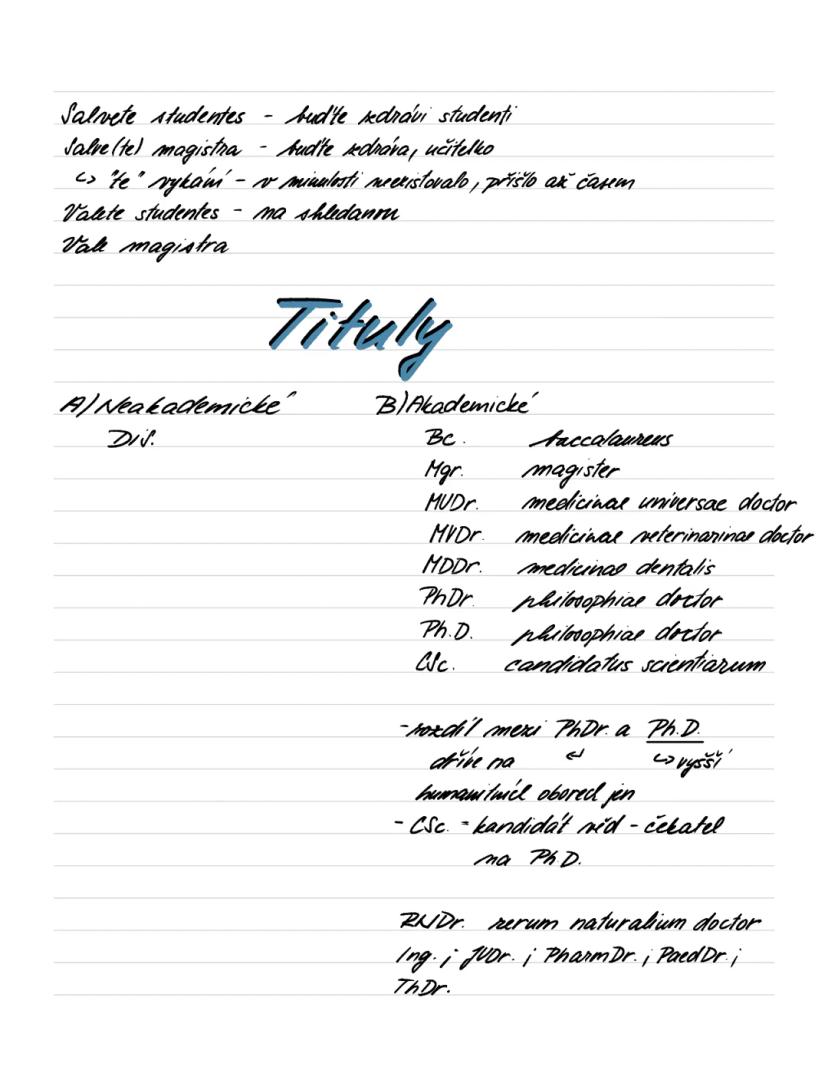 Salvete studentes - buďte zdrávi studenti
Salve(te) magistra - buďte zdráva, učitelko
↳ "te" vykání - v minulosti neexistovalo, přišlo až časem
Valete studentes - na shledanou
Vale magistra
Tituly
A) Neakademické
Dis.
B) Akademické
Bc. baccalaureus
Mgr. magister
MUDr. medicinae universae doctor
MVDr. medicinae veterinarinae doctor
MDDr. medicinae dentalis
PhDr. philosophiae doctor
Ph.D. philosophiae doctor
CSc. candidatus scientiarum
- rozdíl mezi PhDr. a Ph.D.
dříve na ↵ ↳ vyšší
humanitních oborech jen
- CSc. = kandidát věd - čekatel
na Ph D.
RNDr. rerum naturalium doctor
Ing. ; JUDr. ; PharmDr. ; PaedDr. ;
ThDr.